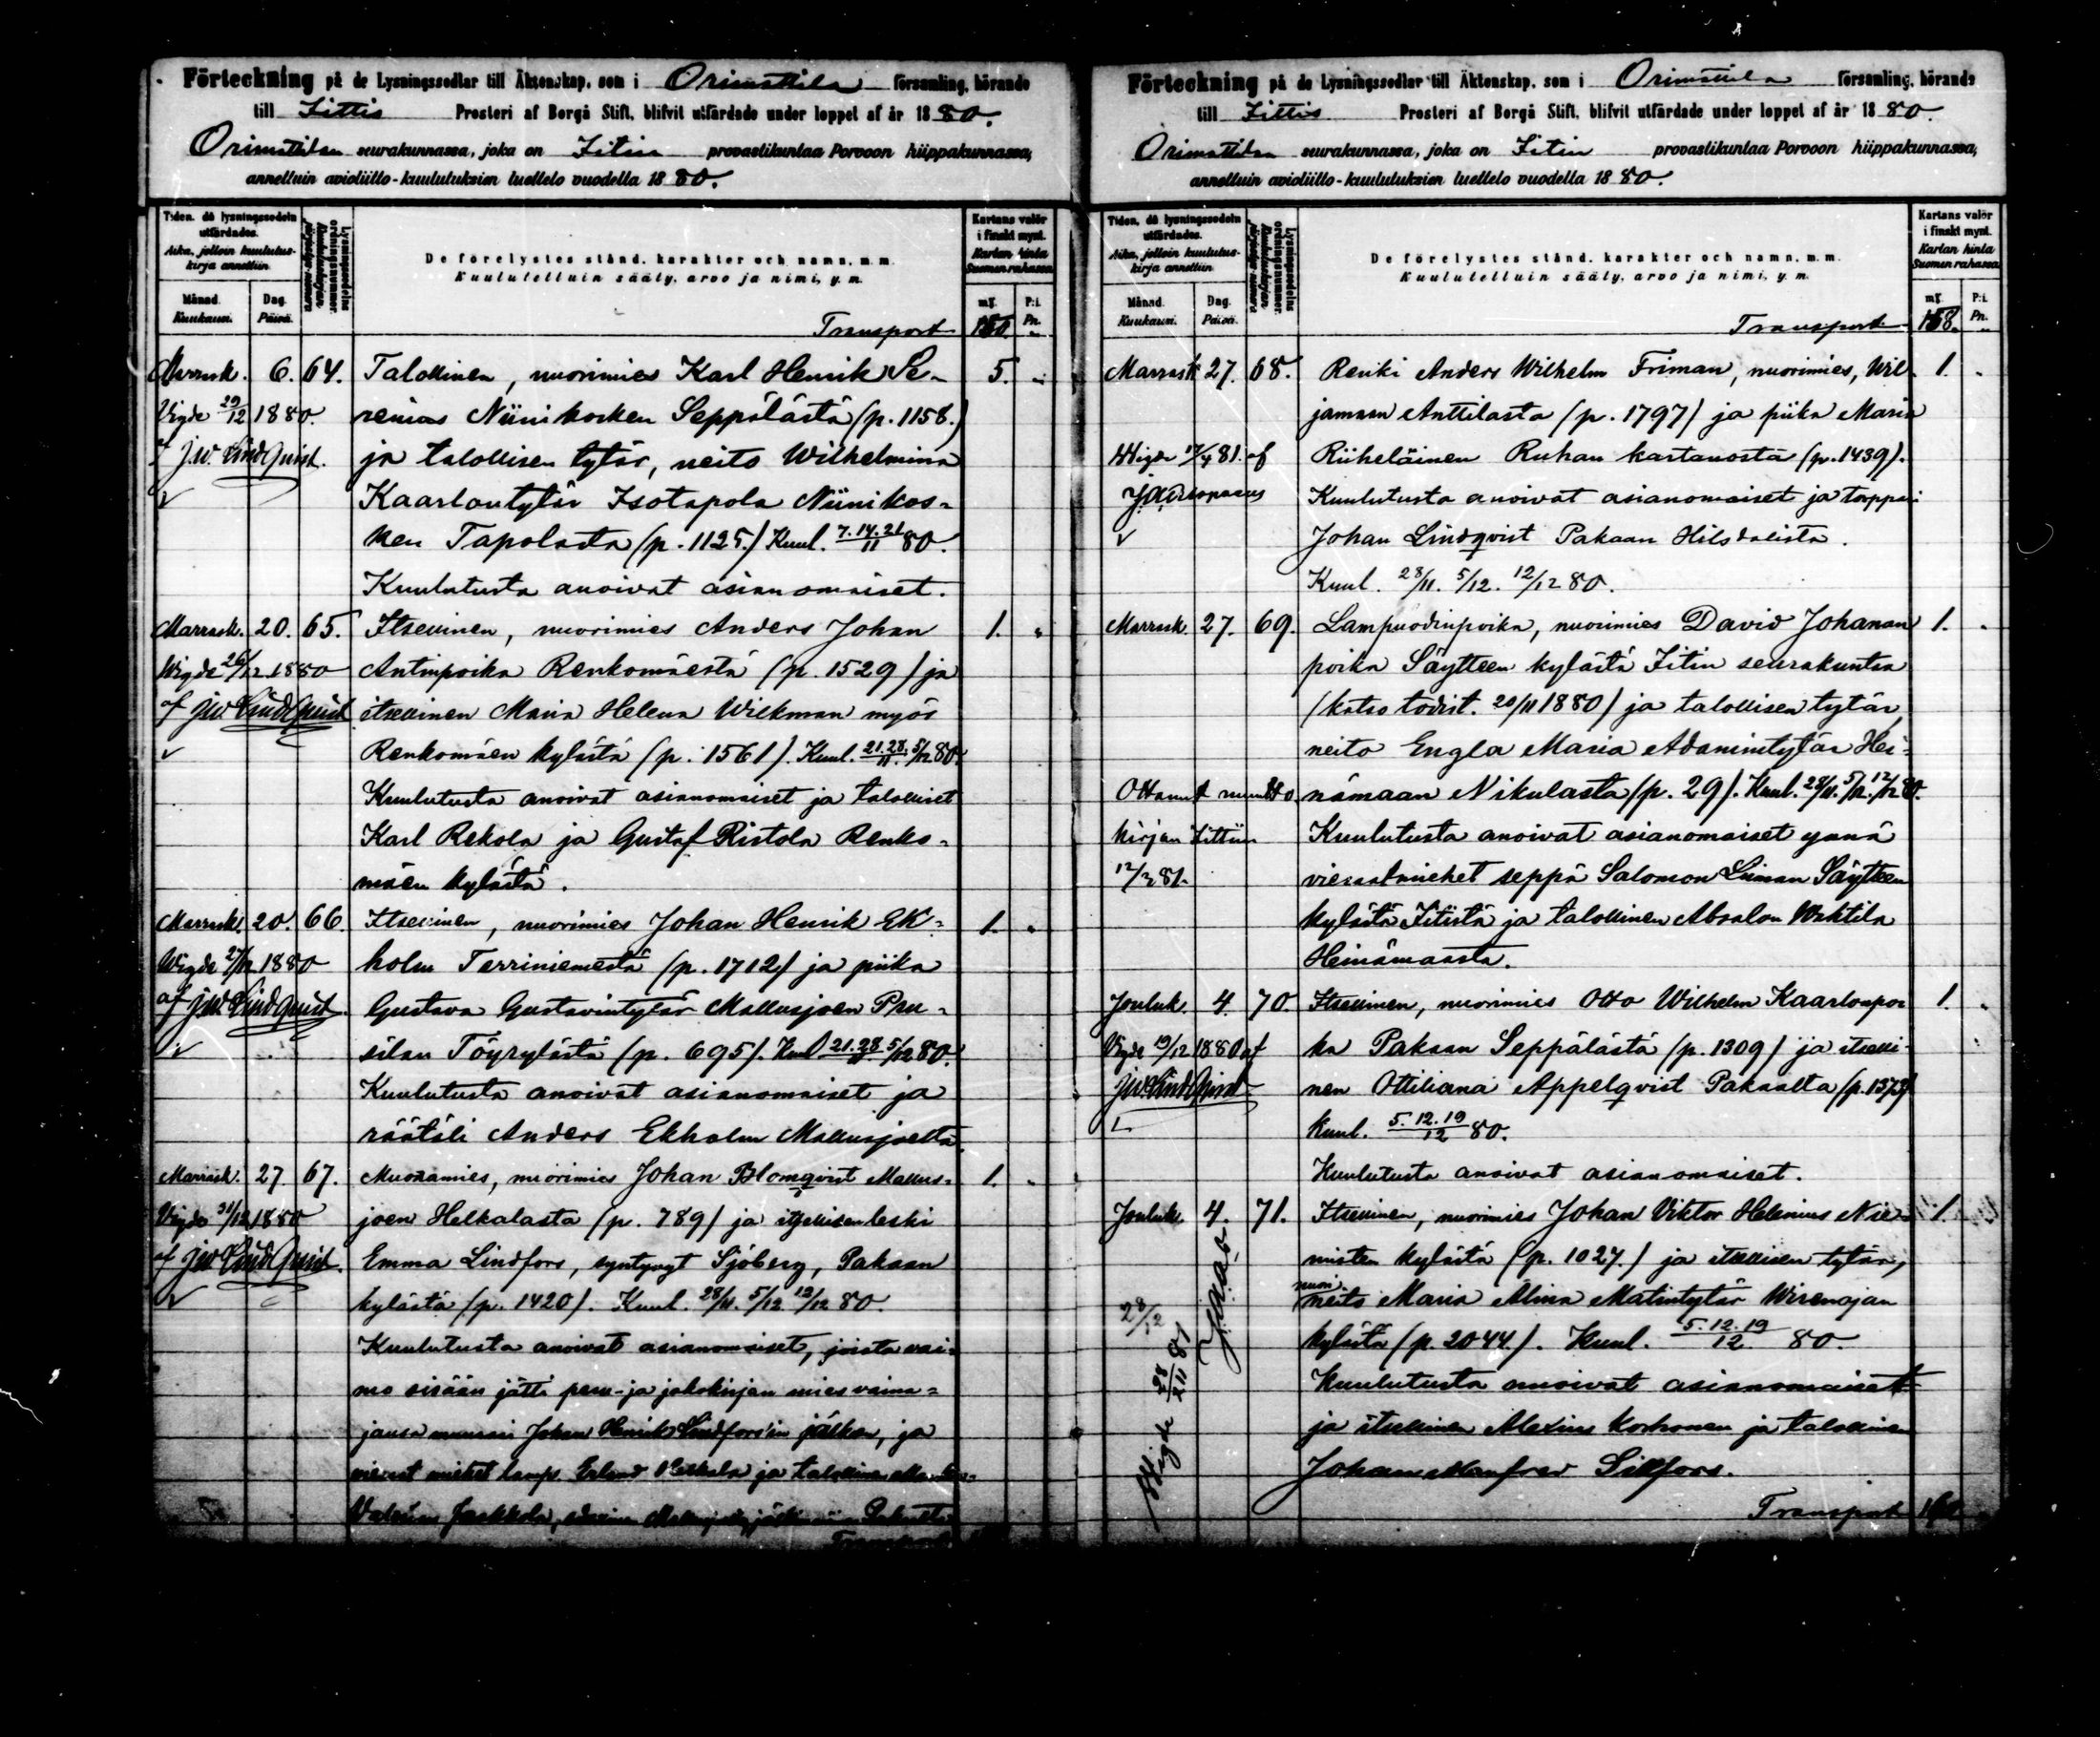 Förteckning på de Lysningssedlar till Äktenskap, som i Orimattila församling, hörande
till Iittis Prosteri af Borgå Stift, blifvit utfärdade under loppet af år 1880.
Orimattilan seurakunnassa, joka on Iitin provastikuntaa Porvoon hiippakunnassa,
annettuin avioliitto-kuulutuksien luettelo vuodella 1880.
Tiden, då lysningssedeln utfärdades.
Aika, jolloin kuulutus-kirja annettiin
Månad. Kuukausi.
Dag. Päivä.
Lysningssedelns ordningsnummer.
Kuulutuskirjan järjestys-numero
De förelystes stånd, karakter och namn, m. m.
Kuulutelluin sääty, arvo ja nimi, y. m.
Kartans valör i finskt mynt.
Kartan hinta Suomen rahassa
mk P:i. Pn.
Transport
Marrask. 6. 64. Talollinen, nuorimies Karl Henrik Se- 5. "
Vigde 29/12 1880. renius Niinikosken Seppälästä (p. 1158.)
af J.W. Lindquist. ja talollisen tytär, neito Wilhelmina
Kaarlontytär Isotapola Niinikos-
ken Tapolasta (p. 1125.) Kuul. 7.14.21/11 80.
Kuulutusta anoivat asianomaiset.
Marrask. 20. 65. Itsellinen, nuorimies Anders Johan 1. "
Wigde 26/12 1880 Antinpoika Renkomäestä (p. 1529) ja
af J.W. Lindquist itsellinen Maria Helena Wilkman myös
Renkomäen kylästä (p. 1561). Kuul. 21.28/11. 5/12 80.
Kuulutusta anoivat asianomaiset ja talolliset
Karl Rekola ja Gustaf Ristola Renko-
mäen kylästä.
Marrask. 20. 66. Itsellinen, nuorimies Johan Henrik Ek- 1. "
Wigde 27/12 1880 holm Terriniemestä (p. 1712) ja piika
af J.W. Lindquist. Gustava Gustavintytär Mallusjoen Pru-
silan Töyrylästä (p. 695). Kuul 21.28/11 5/12 80.
Kuulutusta anoivat asianomaiset ja
räätäli Anders Ekholm Mallusjoelta
Marrask. 27. 67. Muonamies, nuorimies Johan Blomqvist Mallus- 1. "
Vigde 31/12 1880 joen Helkalasta (p. 789) ja itsellisen leski
af J.W. Lindquist. Emma Lindfors, syntynyt Sjöberg, Pakaan
kylästä (p. 1420). Kuul. 28/11. 5/12 12/12 80.
Kuulutusta anoivat asianomaiset, joista vai-
mo sisään jätti peru- ja jakokirjan miesvaina-
jansa muurari Johan Henrik Lindfors'in jälkeen, ja
vieraat miehet lamp. Erland Helkala ja talollinen
Jaakkola,
Förteckning på de Lysningssedlar till Äktenskap, som i Orimattila församling, hörande
till Iittis Prosteri af Borgå Stift, blifvit utfärdade under loppet af år 1880.
Orimattilan seurakunnassa, joka on Iitin provastikuntaa Porvoon hiippakunnassa,
annettuin avioliitto-kuulutuksien luettelo vuodella 1880.
Tiden, då lysningssedeln utfärdades.
Aika, jolloin kuulutus-kirja annettiin
Månad. Kuukausi.
Dag. Päivä.
Lysningssedelns ordningsnummer.
Kuulutuskirjan järjestys-numero
De förelystes stånd, karakter och namn, m. m.
Kuulutelluin sääty, arvo ja nimi, y. m.
Kartans valör i finskt mynt.
Kartan hinta Suomen rahassa
mk P:i. Pn.
Transport 158. "
Marrask 27. 68. Renki Anders Wilhelm Friman, nuorimies, Wil- 1. "
jamaan Anttilasta (p. 1797) ja piika Maria
Riiheläinen Ruhan kartanosta (p. 1439).
Kuulutusta anoivat asianomaiset ja torppari
Johan Lindqvist Pakaan Hilsdalista.
Kuul. 28/11. 5/12. 12/12 80.
Marrask. 27. 69. Lampuodinpoika, nuorimies David Johanan 1. "
poika Säytteen kylästä Iitin seurakuntaa
(katso todist. 20/11 1880) ja talollisen tytär,
neito Engla Maria Adamintytär Hei-
Ottanut muutto nämaan Nikulasta (p. 29). Kuul. 28/11. 5/12. 12/12 80.
kirjan Iittiin Kuulutusta anoivat asianomaiset ynnä
12/3 81. vieraatmiehet seppä Salomon Liman Säytteen
kylästä Iitistä ja talollinen Absalon Wahtila
Heinämaasta.
Jouluk. 4. 70. Itsellinen, nuorimies Otto Wilhelm Kaarlonpoi 1. "
Vigde 19/12 1880 af ka Pakaan Seppälästä (p. 1309) ja itselli-
J.W. Lindquist nen Ottiliana Appelqvist Pakaalta (p. 1373)
Kuul. 5.12.19/12 80.
Kuulutusta anoivat asianomaiset.
Jouluk. 4. 71. Itsellinen, nuorimies Johan Viktor Helenius Nie- 1. "
misten kylästä (p. 1027.) ja itsellisen tytär,
nuori neito Maria Alina Matintytär Wirenojan
kylästä (p. 2044.). Kuul. 5.12.19/12. 80.
Kuulutusta anoivat asianomaiset
ja itsellinen Alexius Korhonen ja talollinen
Johan Manfred Sillfors.
Transport